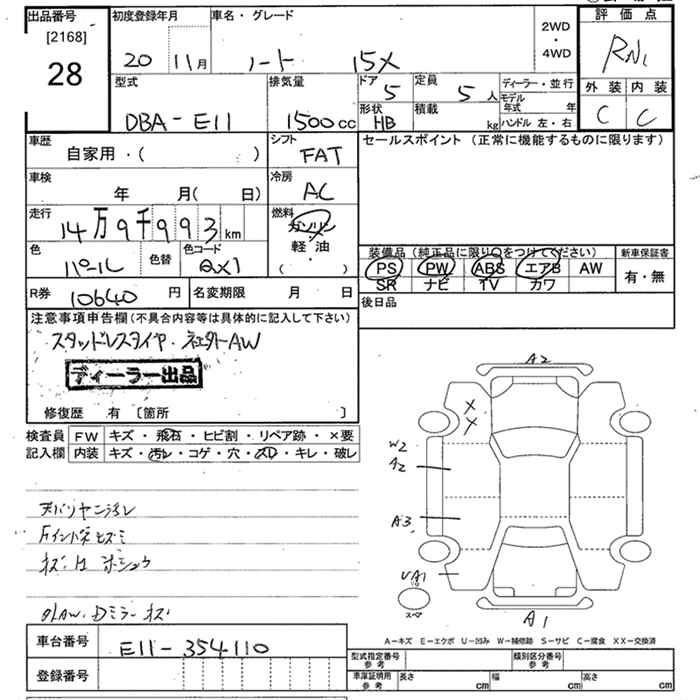 出品番号
[2168]
28
初度登録年月
20 11月
車名・グレード
ノート 15X
2WD
・
4WD
評価点
RN1
外装 内装
C C
型式
DBA-E11
排気量
1500cc
ドア
5
定員
5人
形状
HB
積載
kg
ディーラー・並行
モデル年式 年
ハンドル 左・右
車歴
自家用・( )
シフト
FAT
セールスポイント (正常に機能するものに限ります)
車検
年 月( 日)
冷房
AC
走行
14万9千993km
燃料
ガソリン
・
軽油
・
( )
色
パール
色替
色コード
QX1
装備品(純正品に限り○をつけてください)
PS PW ABS エアB AW
SR ナビ TV カワ
新車保証書
有・無
R券 10640円
名変期限 月 日
後日品
注意事項申告欄(不具合内容等は具体的に記入して下さい)
スタッドレスタイヤ・社外AW
ディーラー出品
修復歴 有 [箇所 ]
検査員
記入欄
FW キズ・飛石・ヒビ割・リペア跡・×要
内装 キズ・汚レ・コゲ・穴・スレ・キレ・破レ
A2
X
X
W2
A2
A3
UA1
スペア
A1
A-キズ E-エクボ U-凹み W-補修跡 S-サビ C-腐食 XX-交換済
車台番号
E11-354110
登録番号
型式指定番号
参考
類別区分番号
参考
車庫証明用
参考
長さ cm
幅 cm
高さ cm